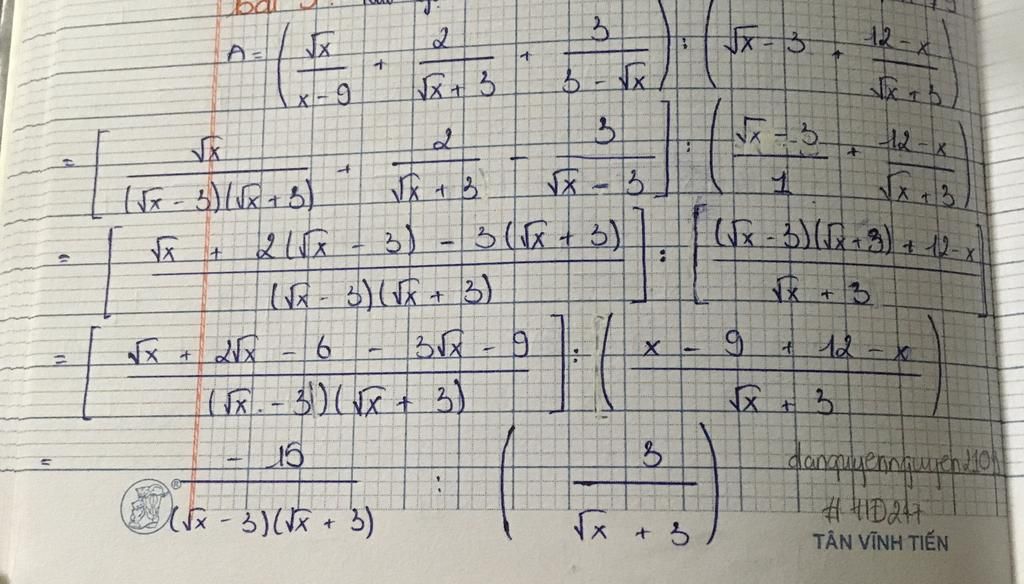 bài
A = ( √x / (x - 9) + 2 / (√x + 3) + 3 / (3 - √x) ) : ( √x - 3 + (12 - x) / (√x + 3) )
= [ √x / ((√x - 3)(√x + 3)) + 2 / (√x + 3) - 3 / (√x - 3) ] : ( (√x - 3) / 1 + (12 - x) / (√x + 3) )
= [ (√x + 2(√x - 3) - 3(√x + 3)) / ((√x - 3)(√x + 3)) ] : [ ((√x - 3)(√x + 3) + 12 - x) / (√x + 3) ]
= [ (√x + 2√x - 6 - 3√x - 9) / ((√x - 3)(√x + 3)) ] : ( (x - 9 + 12 - x) / (√x + 3) )
= -15 / ((√x - 3)(√x + 3)) : ( 3 / (√x + 3) )
®
TÂN VĨNH TIẾN